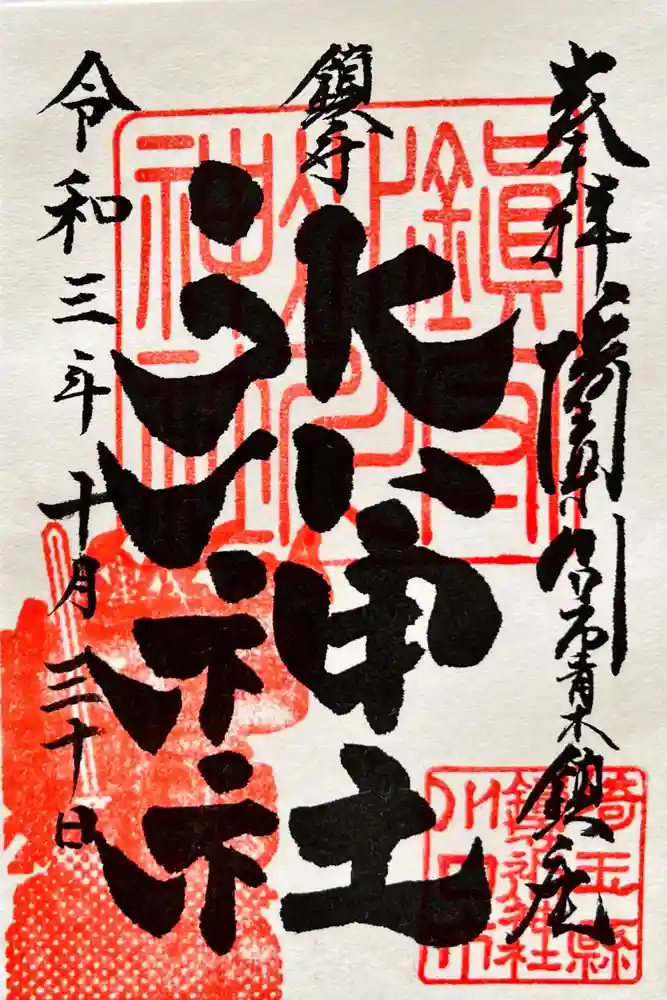 奉拝 埼玉県川口市青木鎮座
鎮守
氷川神社
令和三年十月三十日
鎮守
氷川
神社
埼玉縣
鎮守氷川神社
川口市